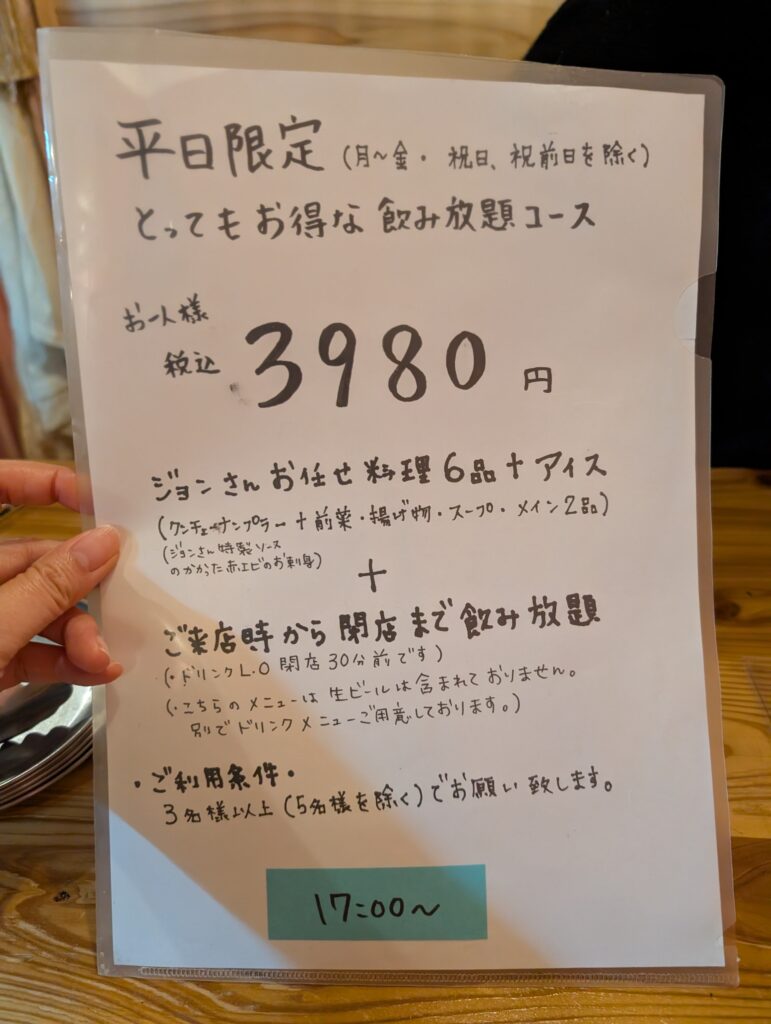 平日限定 (月〜金・祝日、祝前日を除く)
とってもお得な飲み放題コース
お一人様
税込 3980円
ジョンさんお任せ料理6品+アイス
(クンチェーナンプラー+前菜・揚げ物・スープ・メイン2品)
(ジョンさん特製ソース
のかかった赤エビのお刺身)
+
ご来店時から閉店まで飲み放題
(・ドリンクL.O 閉店30分前です)
(・こちらのメニューは生ビールは含まれておりません。
別でドリンクメニューご用意しております。)
・ご利用条件・
3名様以上(5名様を除く)でお願い致します。
17:00〜